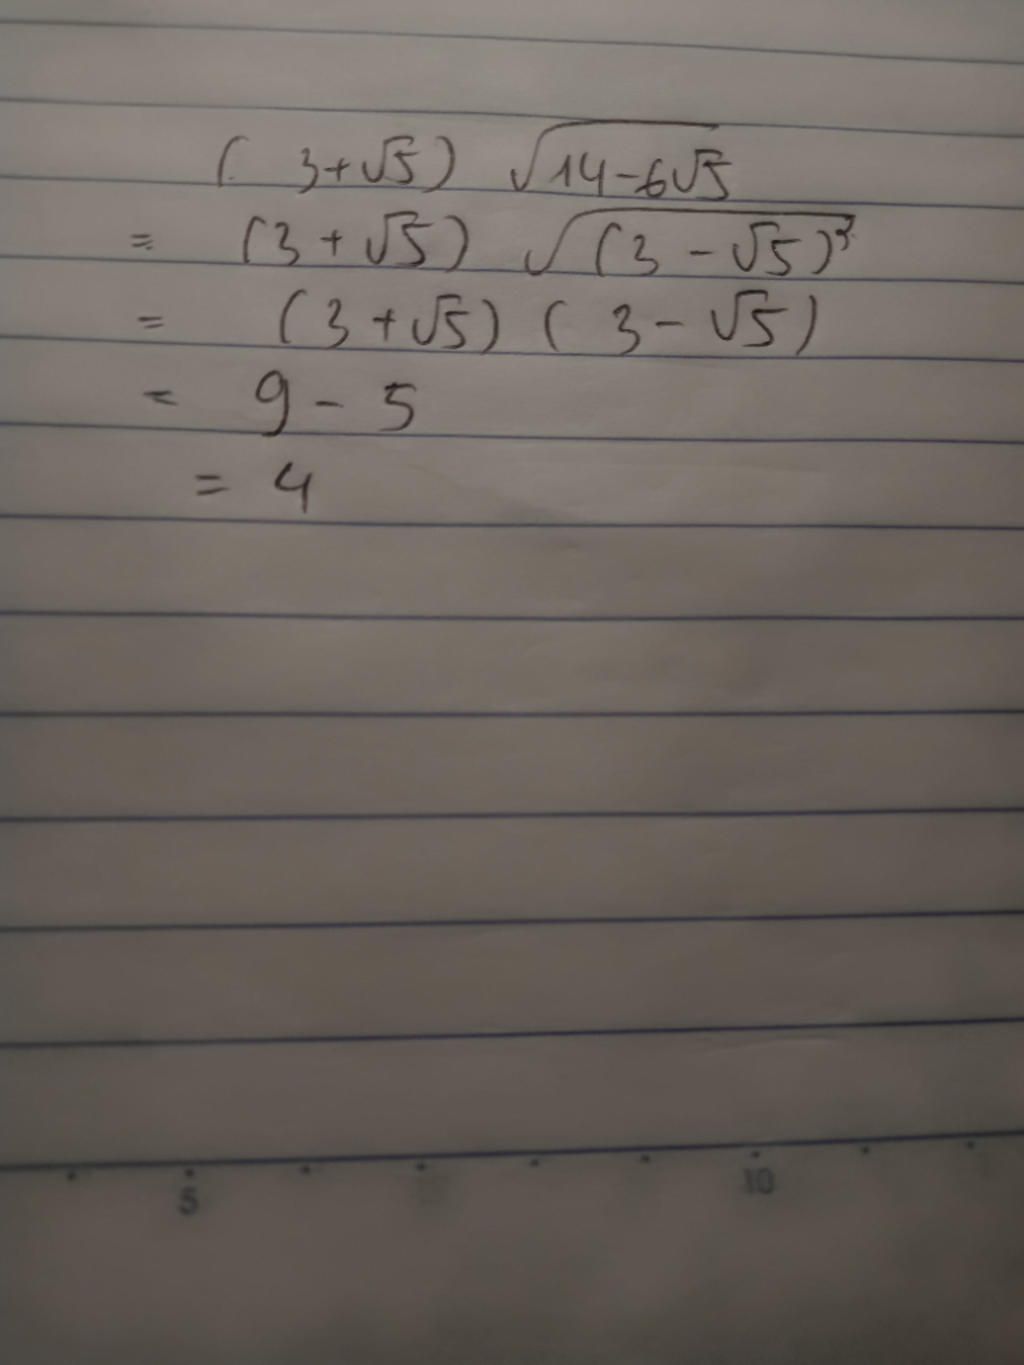 ( 3+√5) √14-6√5
= (3+√5) √(3-√5)²
= (3+√5) (3-√5)
= 9-5
= 4
5 10